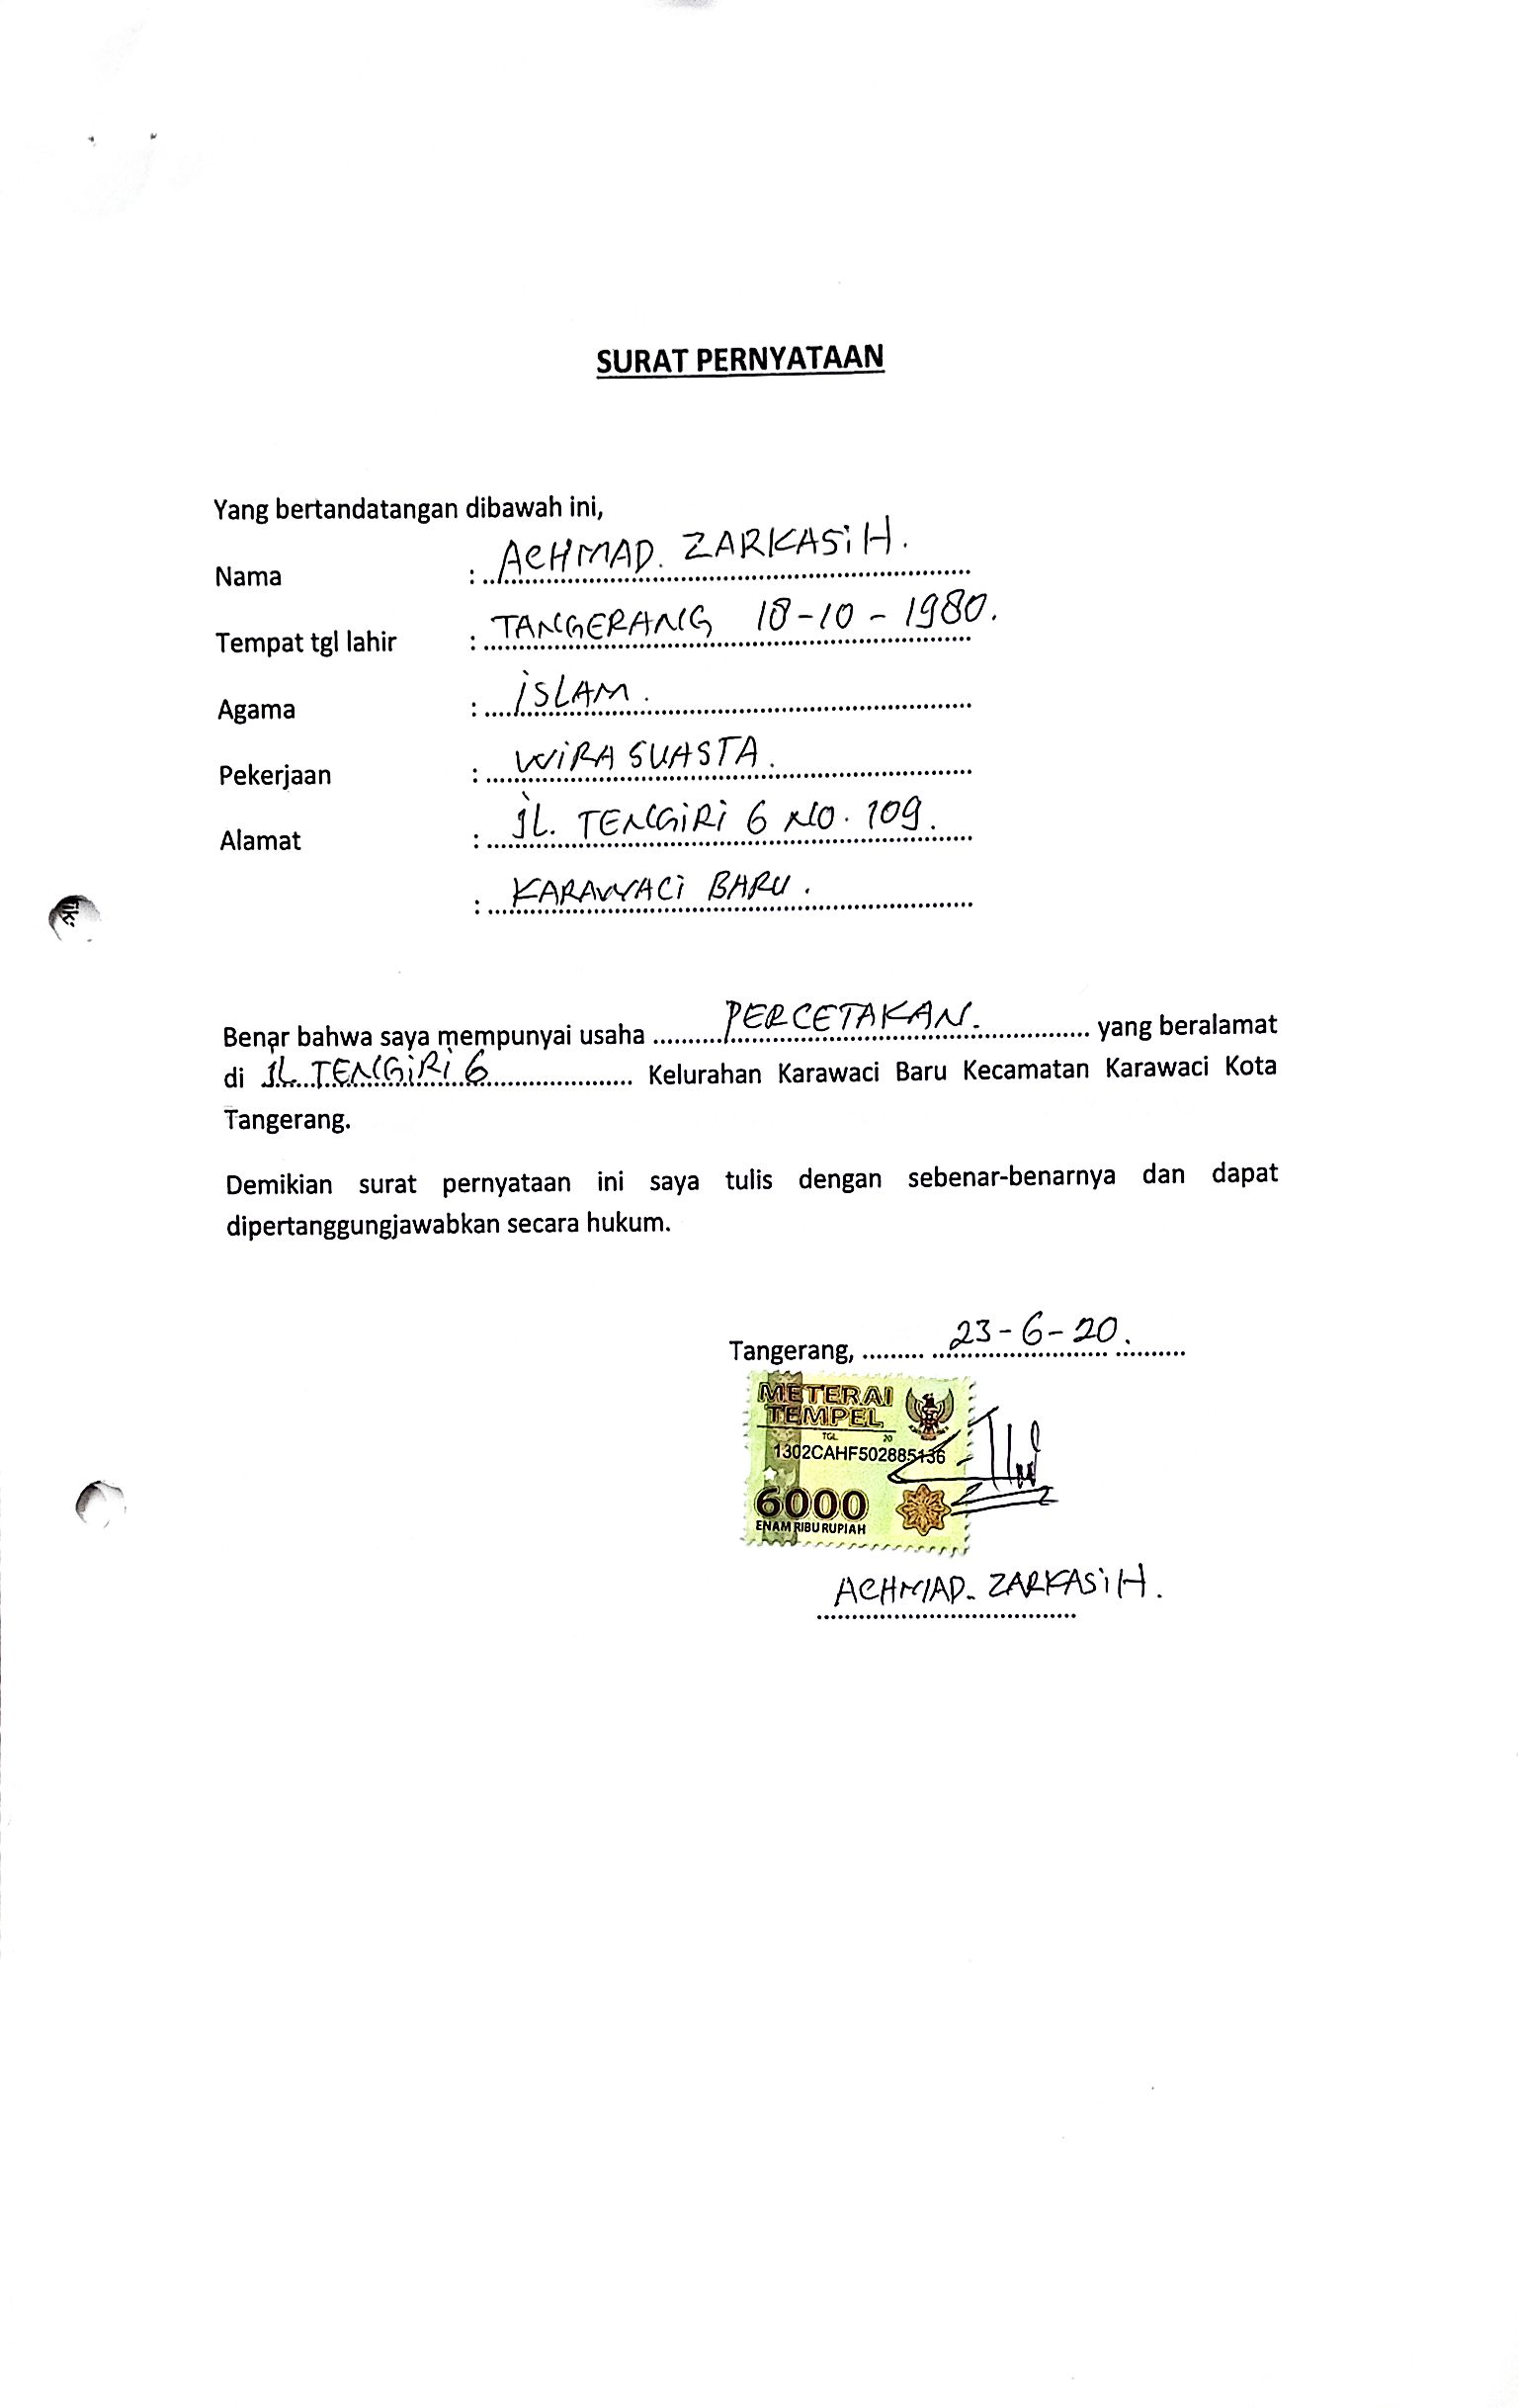 SURAT PERNYATAAN
Yang bertandatangan dibawah ini,
Nama : ACHMAD. ZARKASiH.
Tempat tgl lahir : TANGERANG 18-10-1980.
Agama : iSLAM.
Pekerjaan : WiRA SUASTA.
Alamat : JL. TENGiRi 6 NO. 109.
: KARAWACi BARU.
Benar bahwa saya mempunyai usaha PERCETAKAN. yang beralamat
di JL TENGiRi 6 Kelurahan Karawaci Baru Kecamatan Karawaci Kota
Tangerang.
Demikian surat pernyataan ini saya tulis dengan sebenar-benarnya dan dapat
dipertanggungjawabkan secara hukum.
Tangerang, 23-6-20.
METERAI
TEMPEL
TGL 20
1302CAHF502885136
6000
ENAM RIBU RUPIAH
ACHMAD. ZARKASiH.